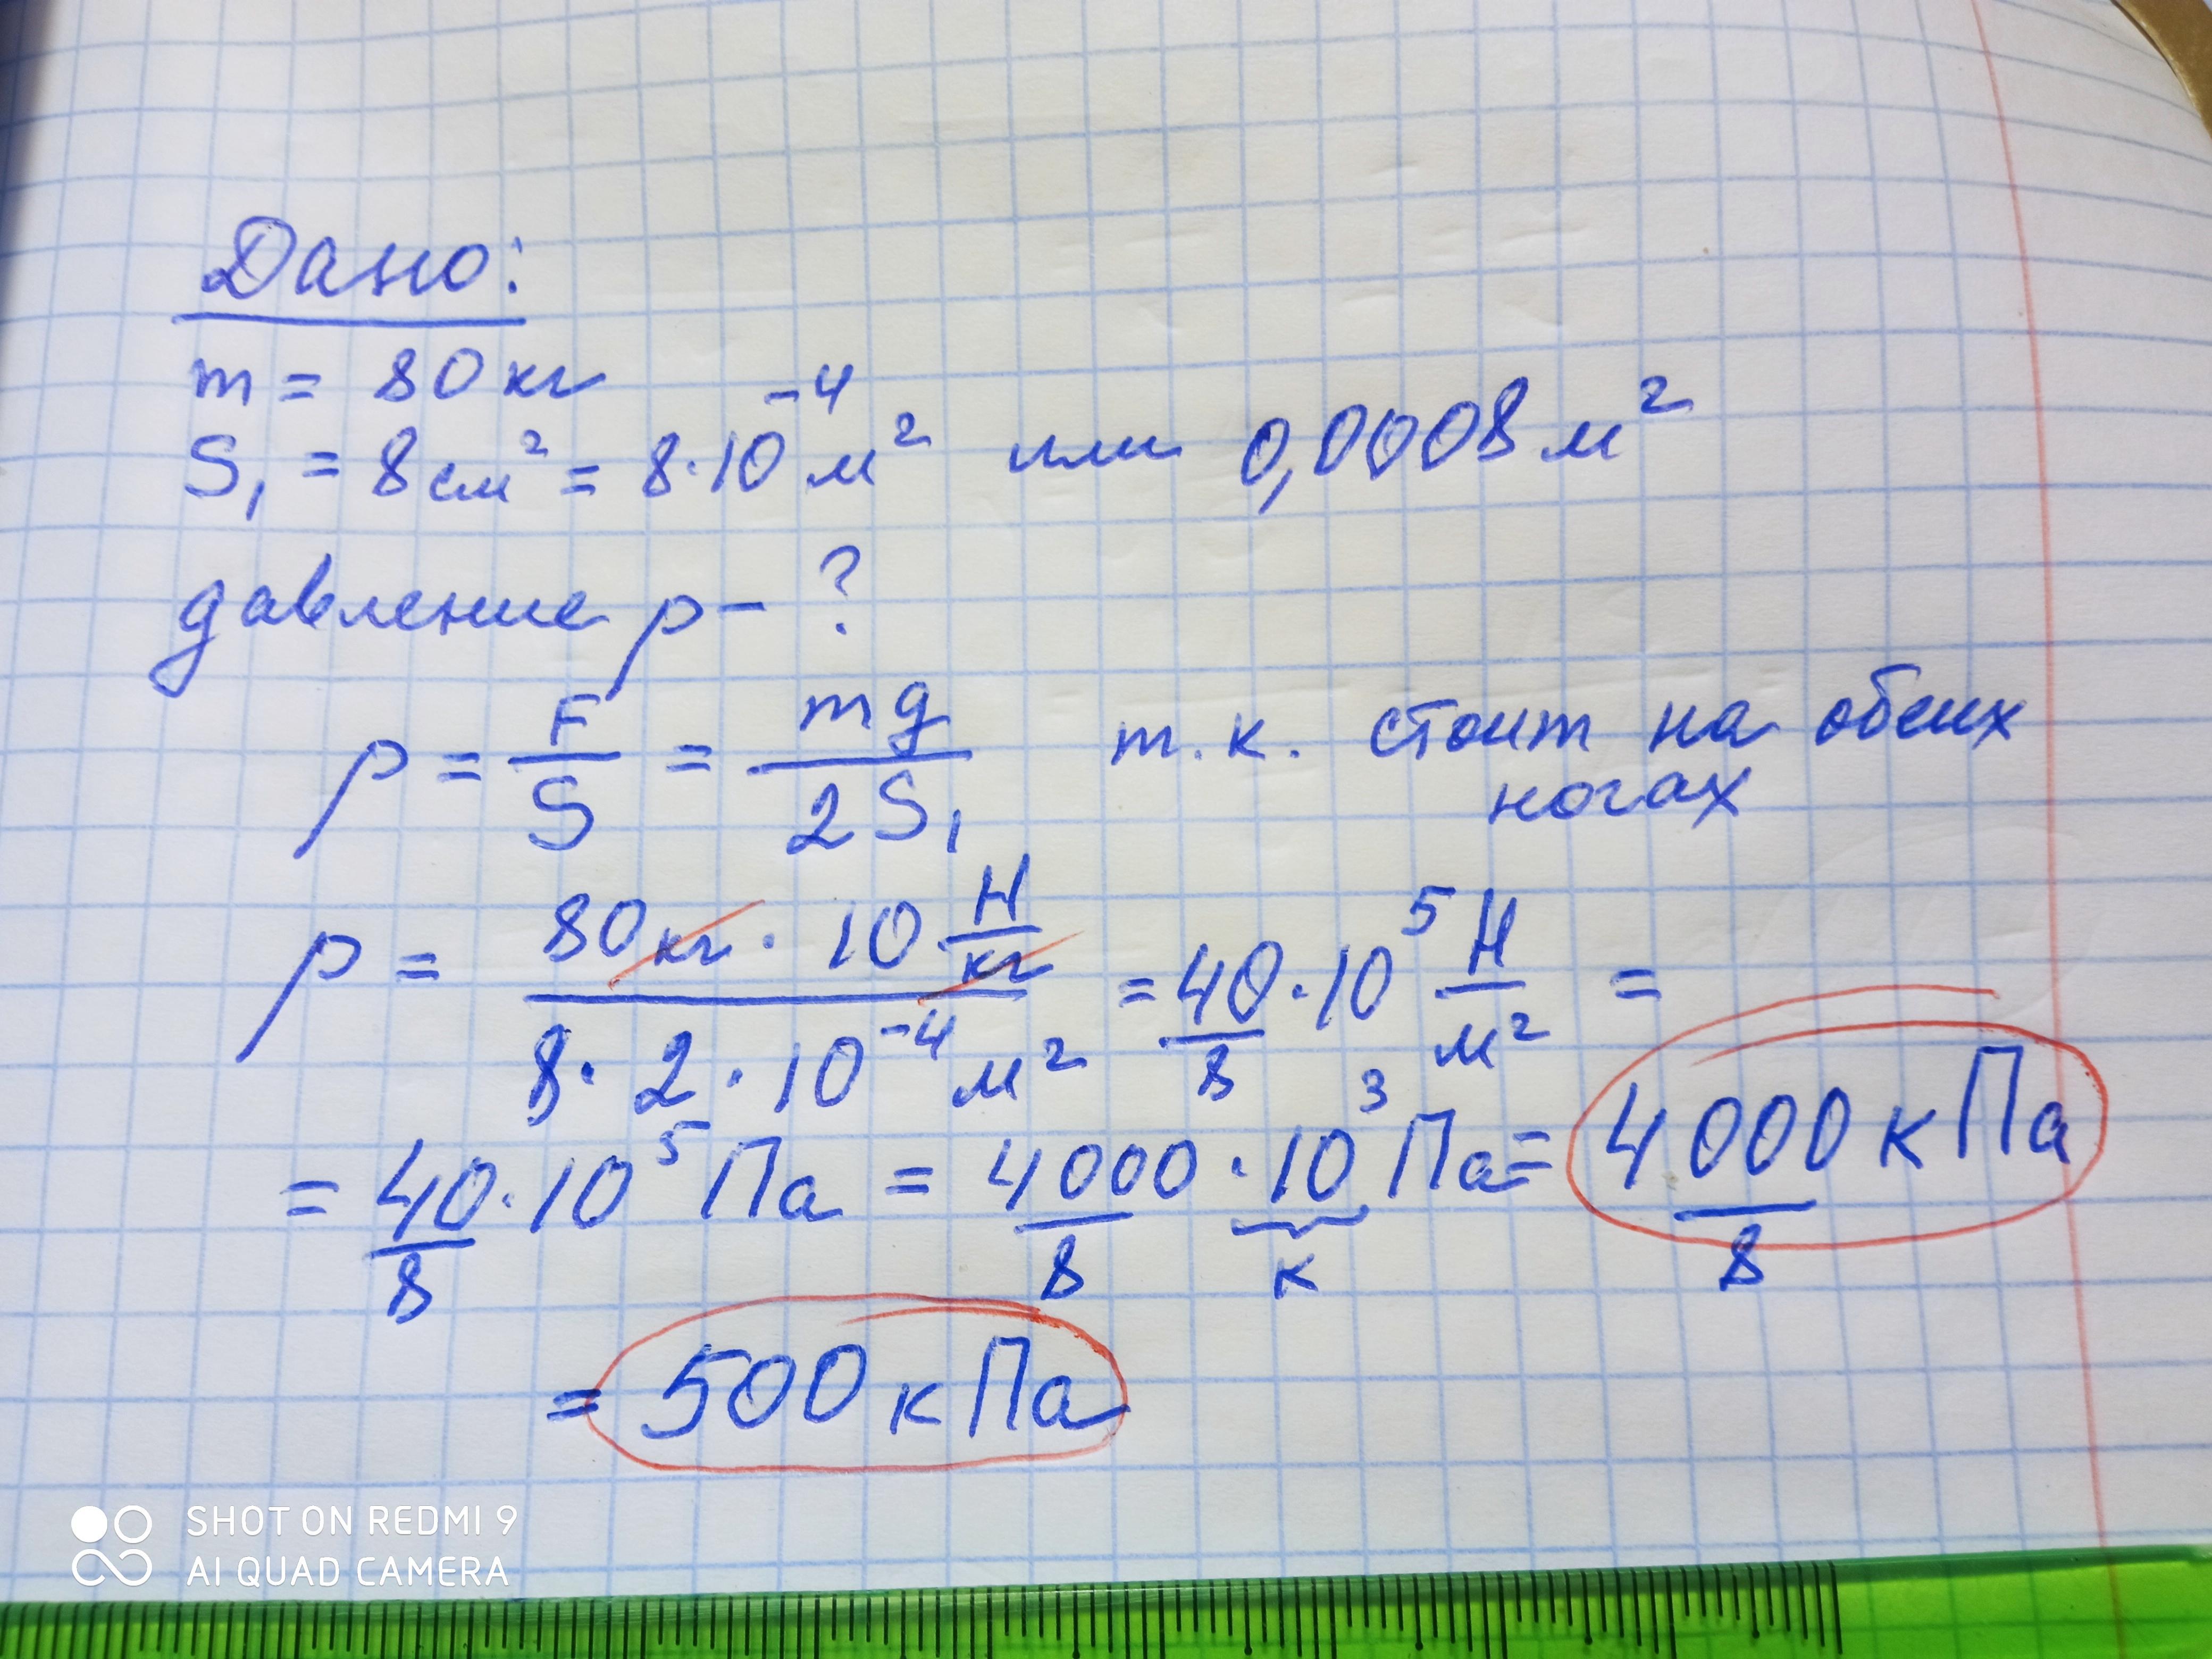 Дано:
m = 80 кг
S₁ = 8 см² = 8·10⁻⁴ м² или 0,0008 м²
давление p - ?
p = F/S = mg/2S₁ т.к. стоит на обеих
ногах
p = 80 кг · 10 Н/кг / 8·2·10⁻⁴ м² = 40/8 · 10⁵ Н/м² =
= 40/8 · 10⁵ Па = 4000/8 · 10³ Па = 4000/8 кПа
к
= 500 кПа
SHOT ON REDMI 9
AI QUAD CAMERA